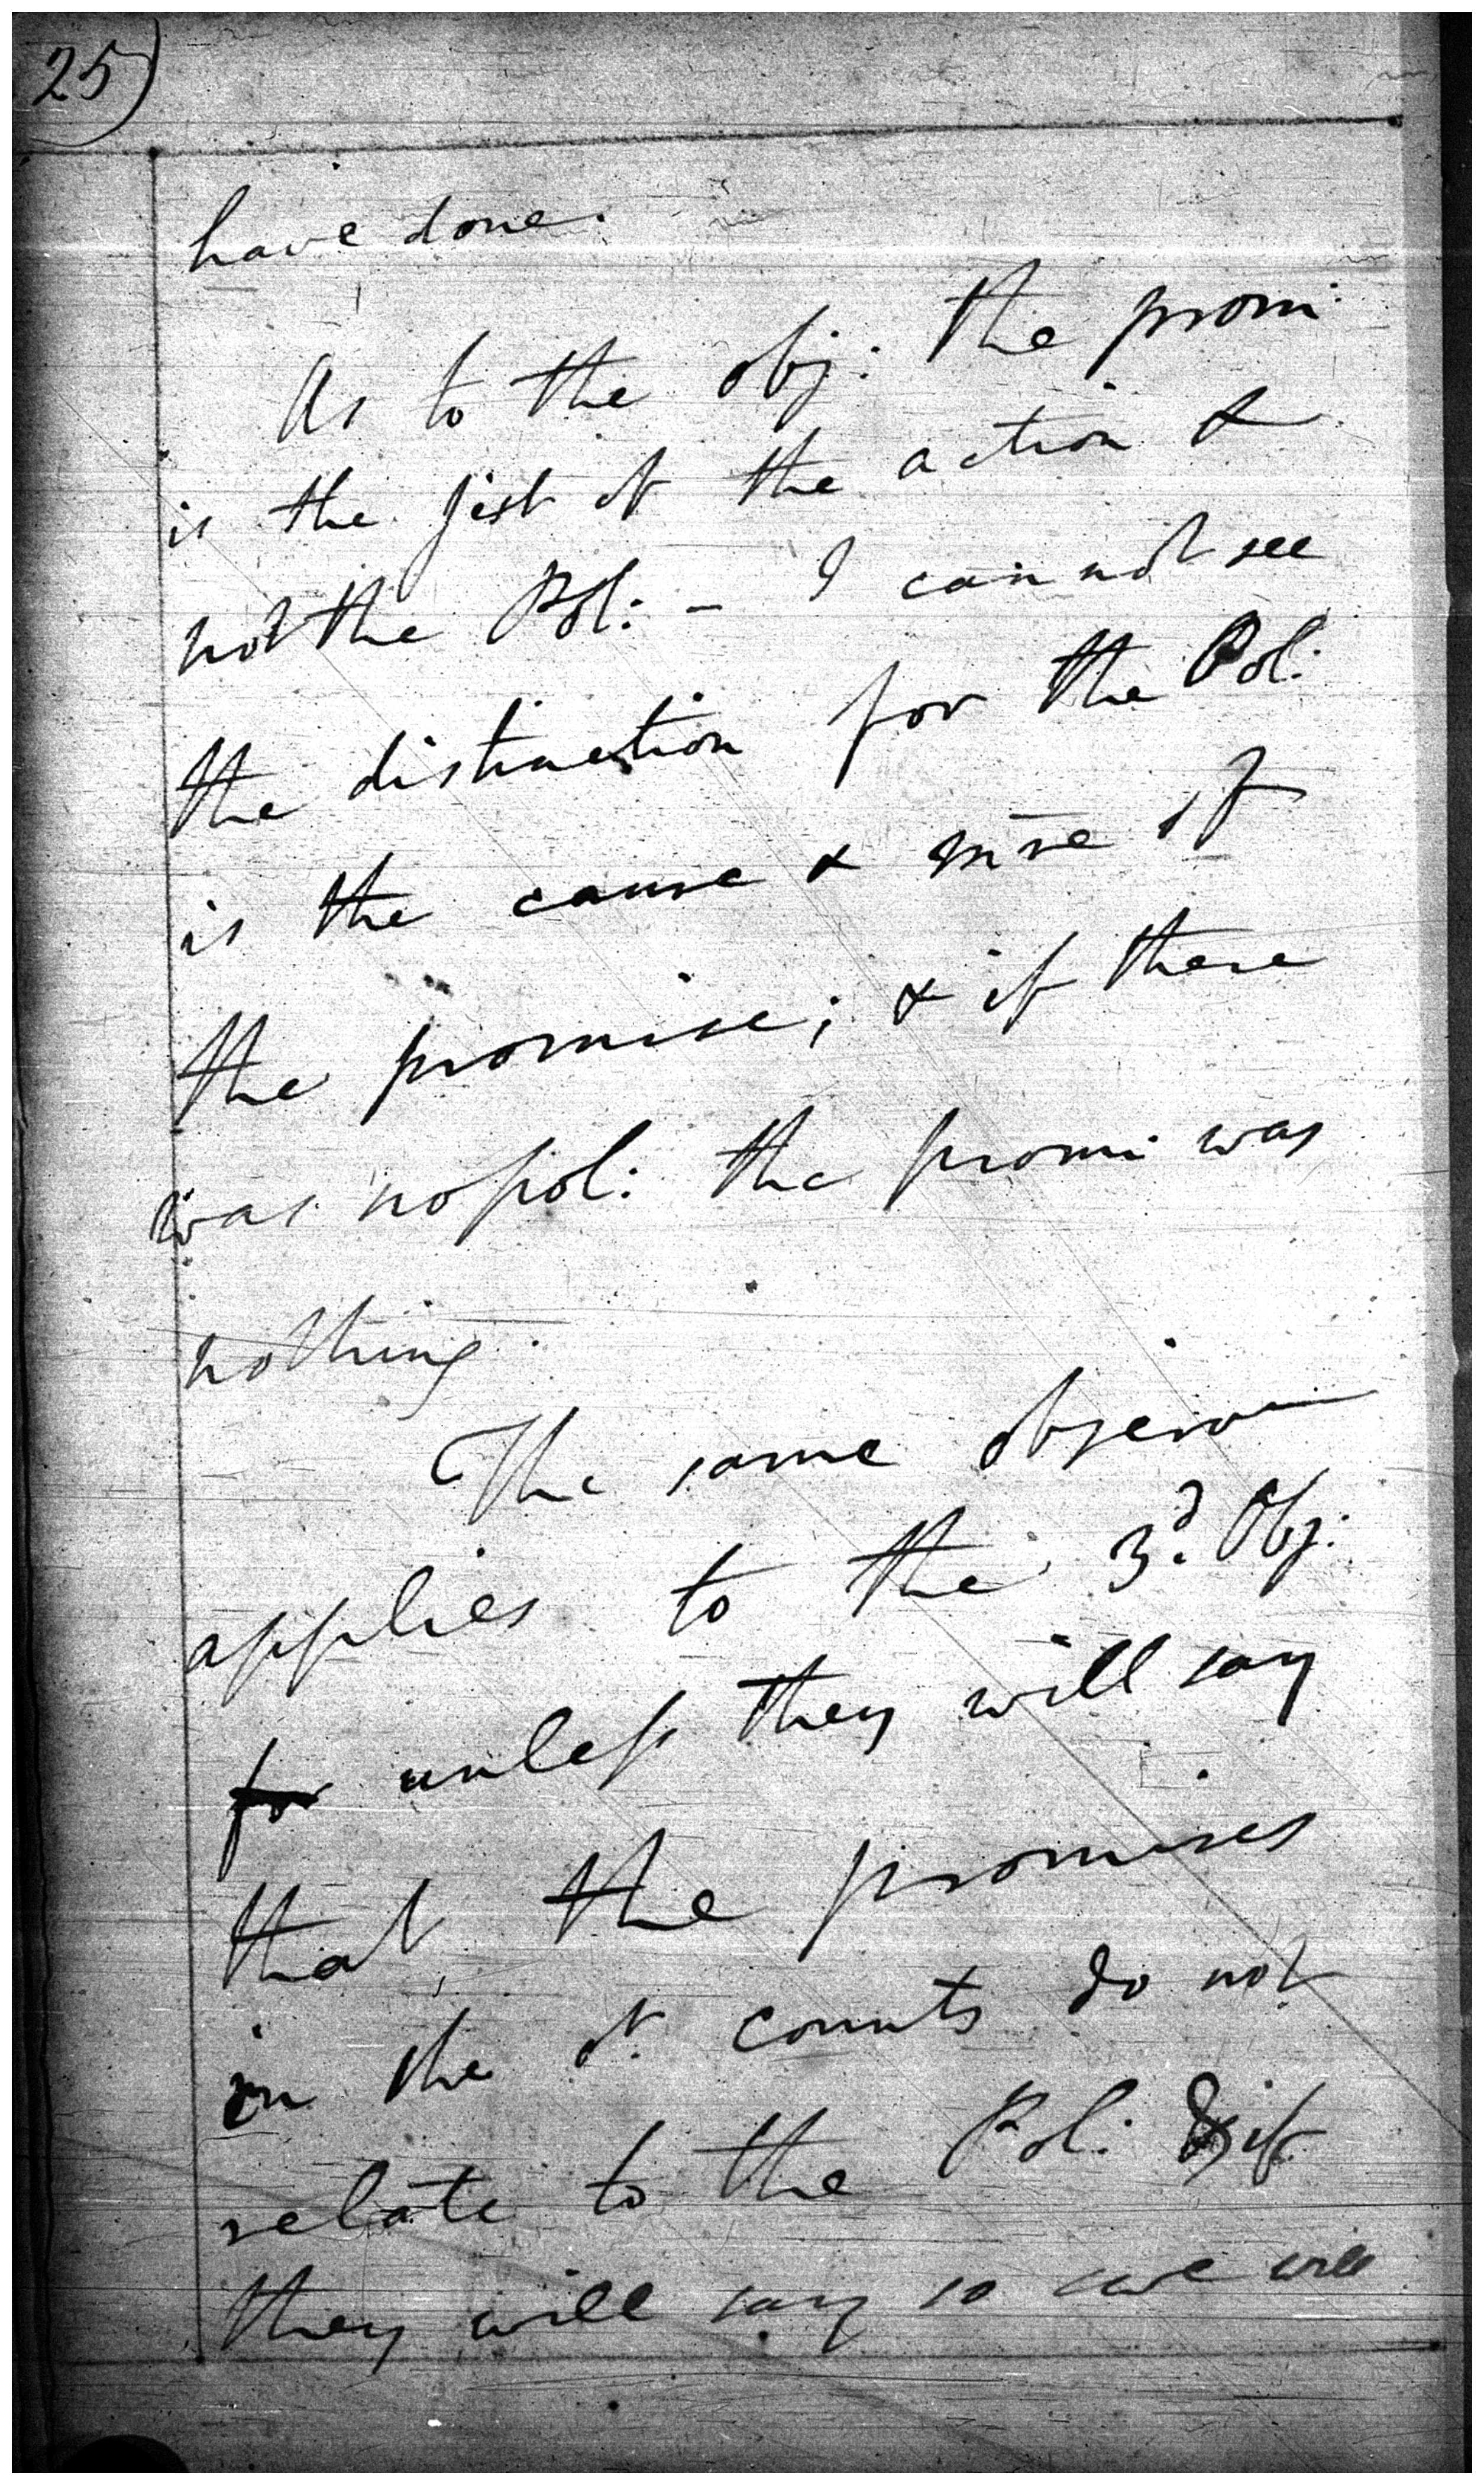 25)
have done.
As to the obj: the promi
is the gist of the action &
not the Pol: - I cannot see
the distinction for the Pol:
is the cause & more of
the promise; & if there
was no pol: the promi was
nothing.
The same observ
applies to the 3d. Obj:
for unless they will say
that the promises
in the counts do not
relate to the Pol: & if
they will say so we will